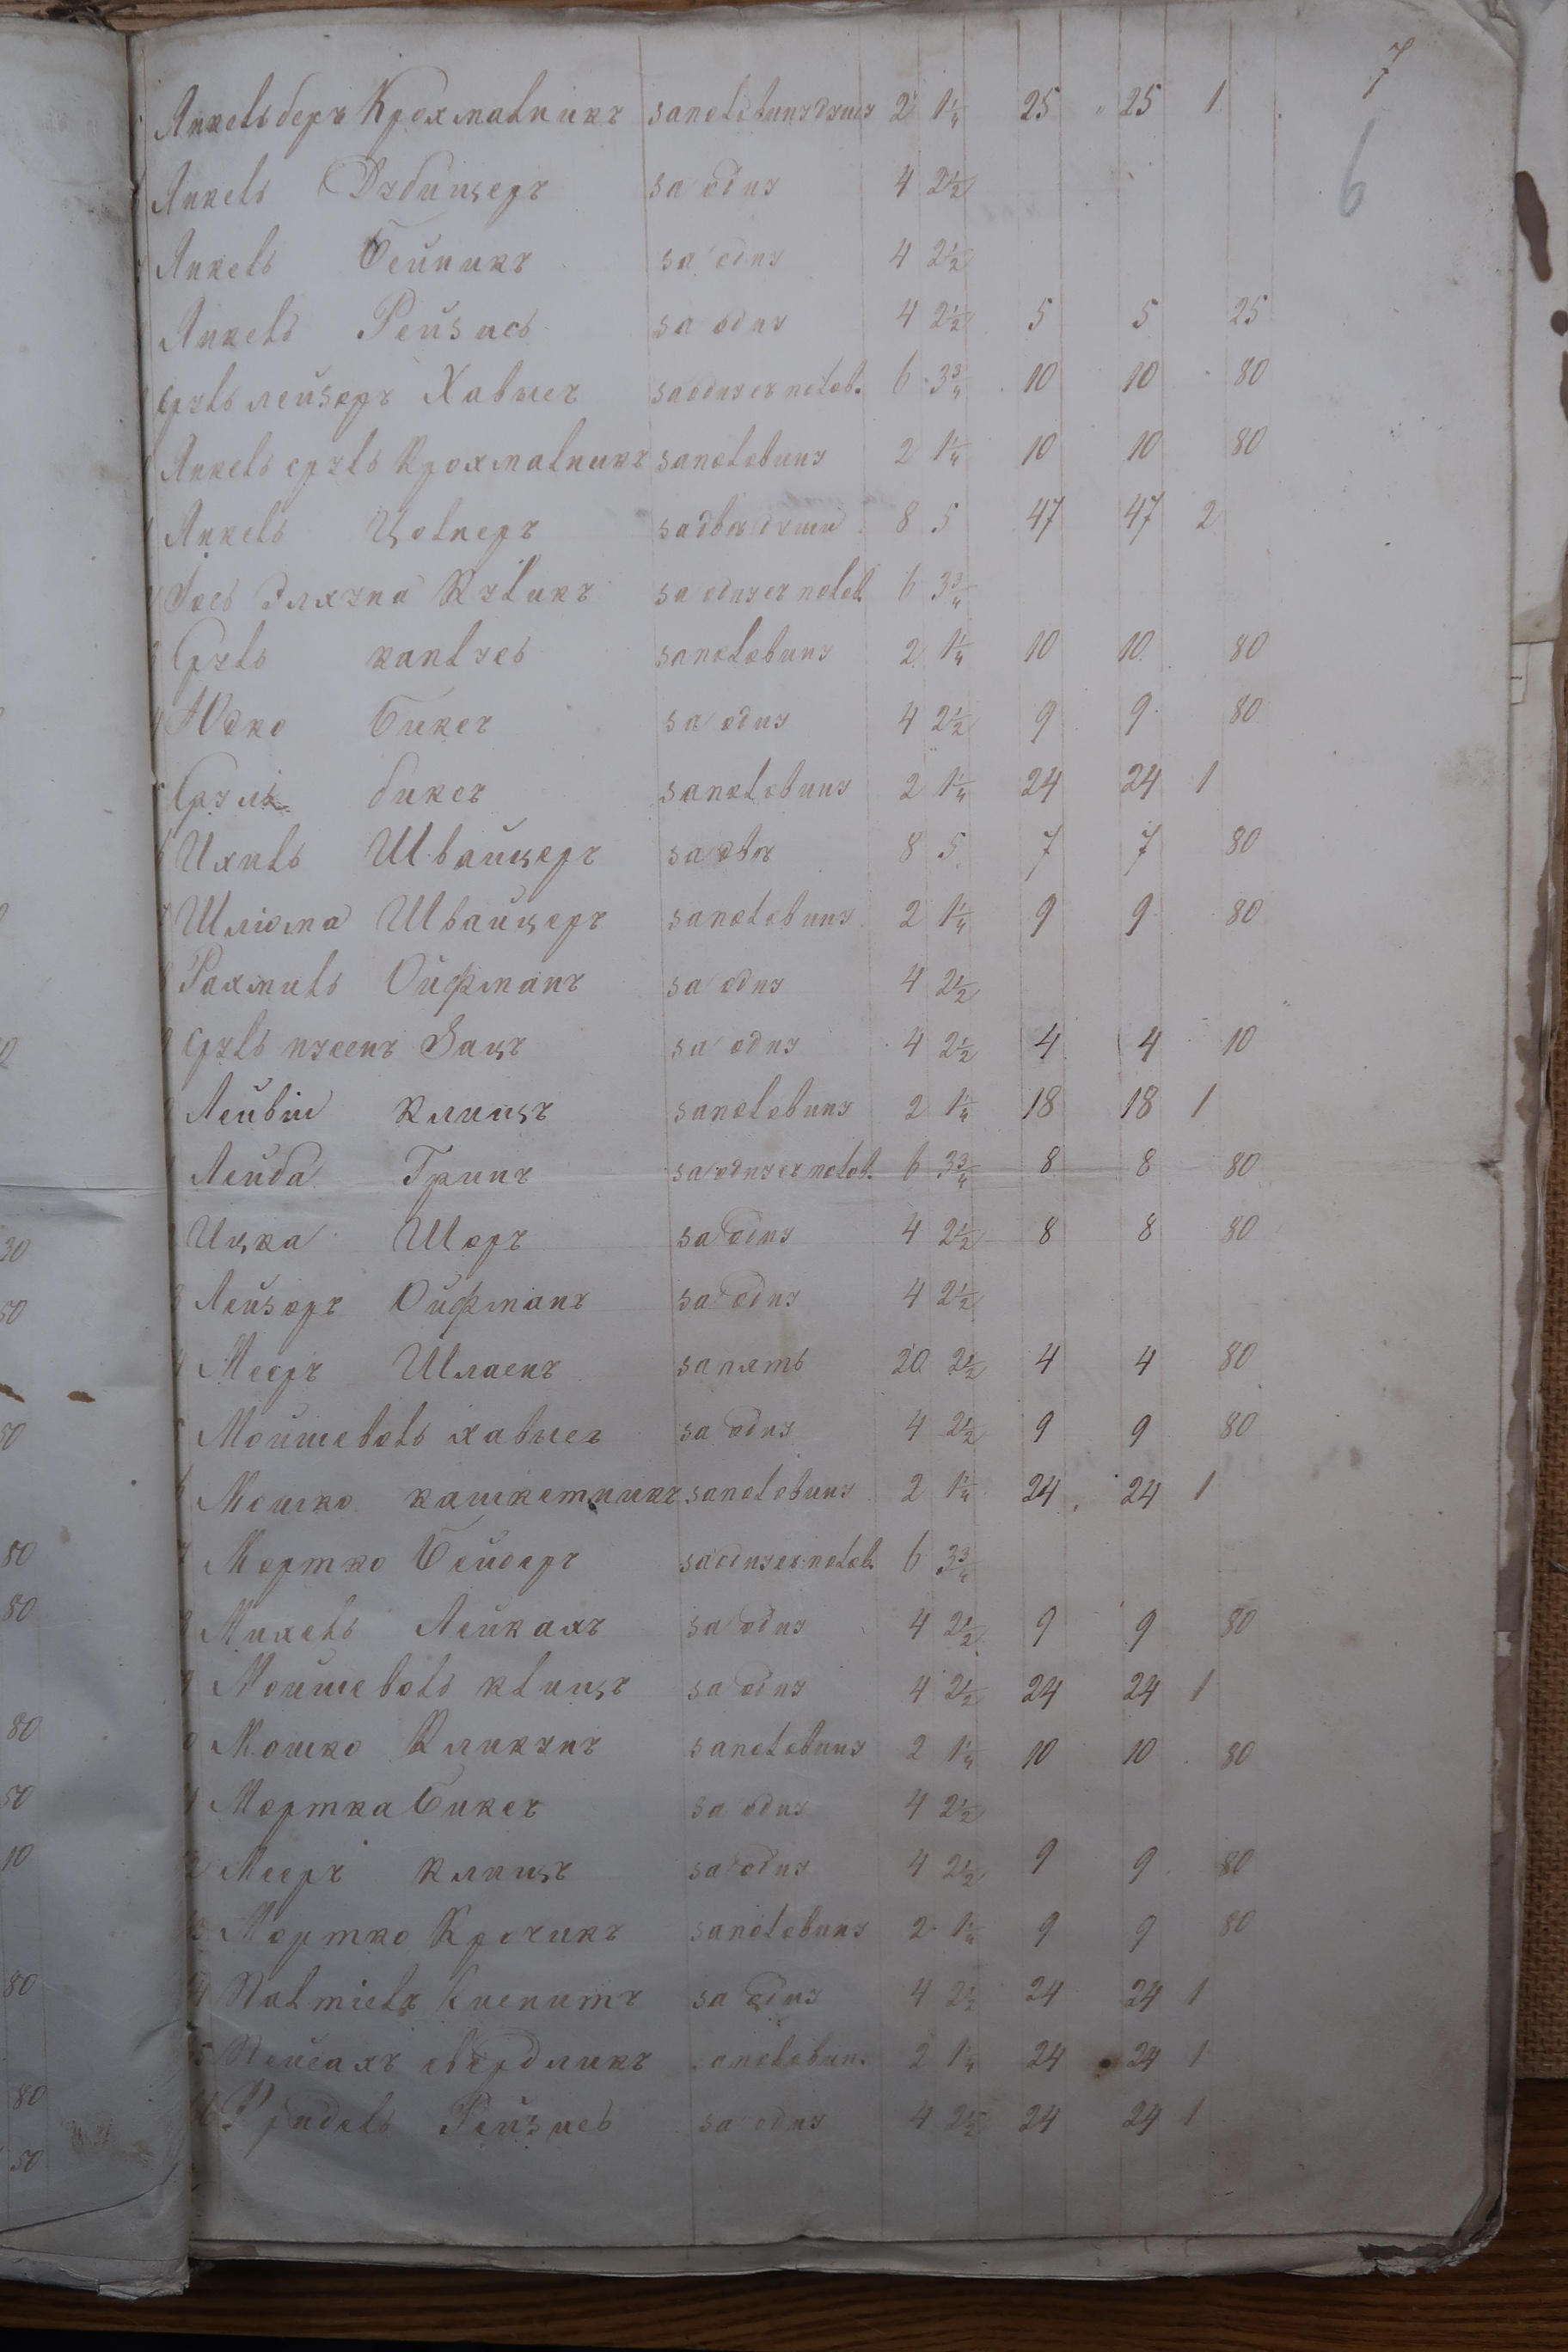 7
6
Янкель беръ Крохмальникъ за полъвину души 2 1¼ 25 25 1
Янкель Дубицеръ за одну 4 2½
Янкель Бейникъ за одну 4 2½
Янкель Рейзись за одну 4 2½ 5 5 25
Сруль лейзоръ Хавчегъ за одну съ полов. 6 3¾ 10 10 80
Янкель сруль Крохмальникъ за полъвину 2 1¼ 10 10 80
Янкель Цолнеръ за двѣ души 8 5 47 47 2
Іось Куликъ за одну съ полов 6 3¾
Сруль за полъвину 2 1¼ 10 10 80
Юдко Бикеръ за одну 4 2½ 9 9 80
Сруль бикеръ за половину 2 1¼ 24 24 1
Ихиль Швайцеръ за двѣ 8 5 7 7 80
Шліома Швайцеръ за половину 2 1¼ 9 9 80
Рахмиль Ойфманъ за одну 4 2½
Сруль нусенъ Зацъ за одну 4 2½ 4 4 10
Лейвіи Клицъ за половину 2 1¼ 18 18 1
Лейба Гринъ за одну съ полов. 6 3¾ 8 8 80
Ицка Шоръ за одну 4 2½ 8 8 80
Лейзоръ Ойфманъ за одну 4 2½
Мееръ Шлаенъ за пять 20 2½ 4 4 80
Мойше воль хавчегъ за одну 4 2½ 9 9 80
Мошко кашкетникъ за половину 2 1¼ 24 24 1
Мортко Бейдеръ за одну съ полов. 6 3¾
Михель Лейкахъ за одну 4 2½ 9 9 80
Мойше воль клицъ за одну 4 2½ 24 24 1
Мошко Кликунъ за половину 2 1¼ 10 10 80
Мортка Бикеръ за одну 4 2½
Мееръ клицъ за одну 4 2½ 9 9 80
Мортко Крочикъ за половину 2 1¼ 9 9 80
за одну 4 2½ 24 24 1
Пейсахъ свердликъ за половин. 2 1¼ 24 24 1
Фридель Рейзись за одну 4 2½ 24 24 1